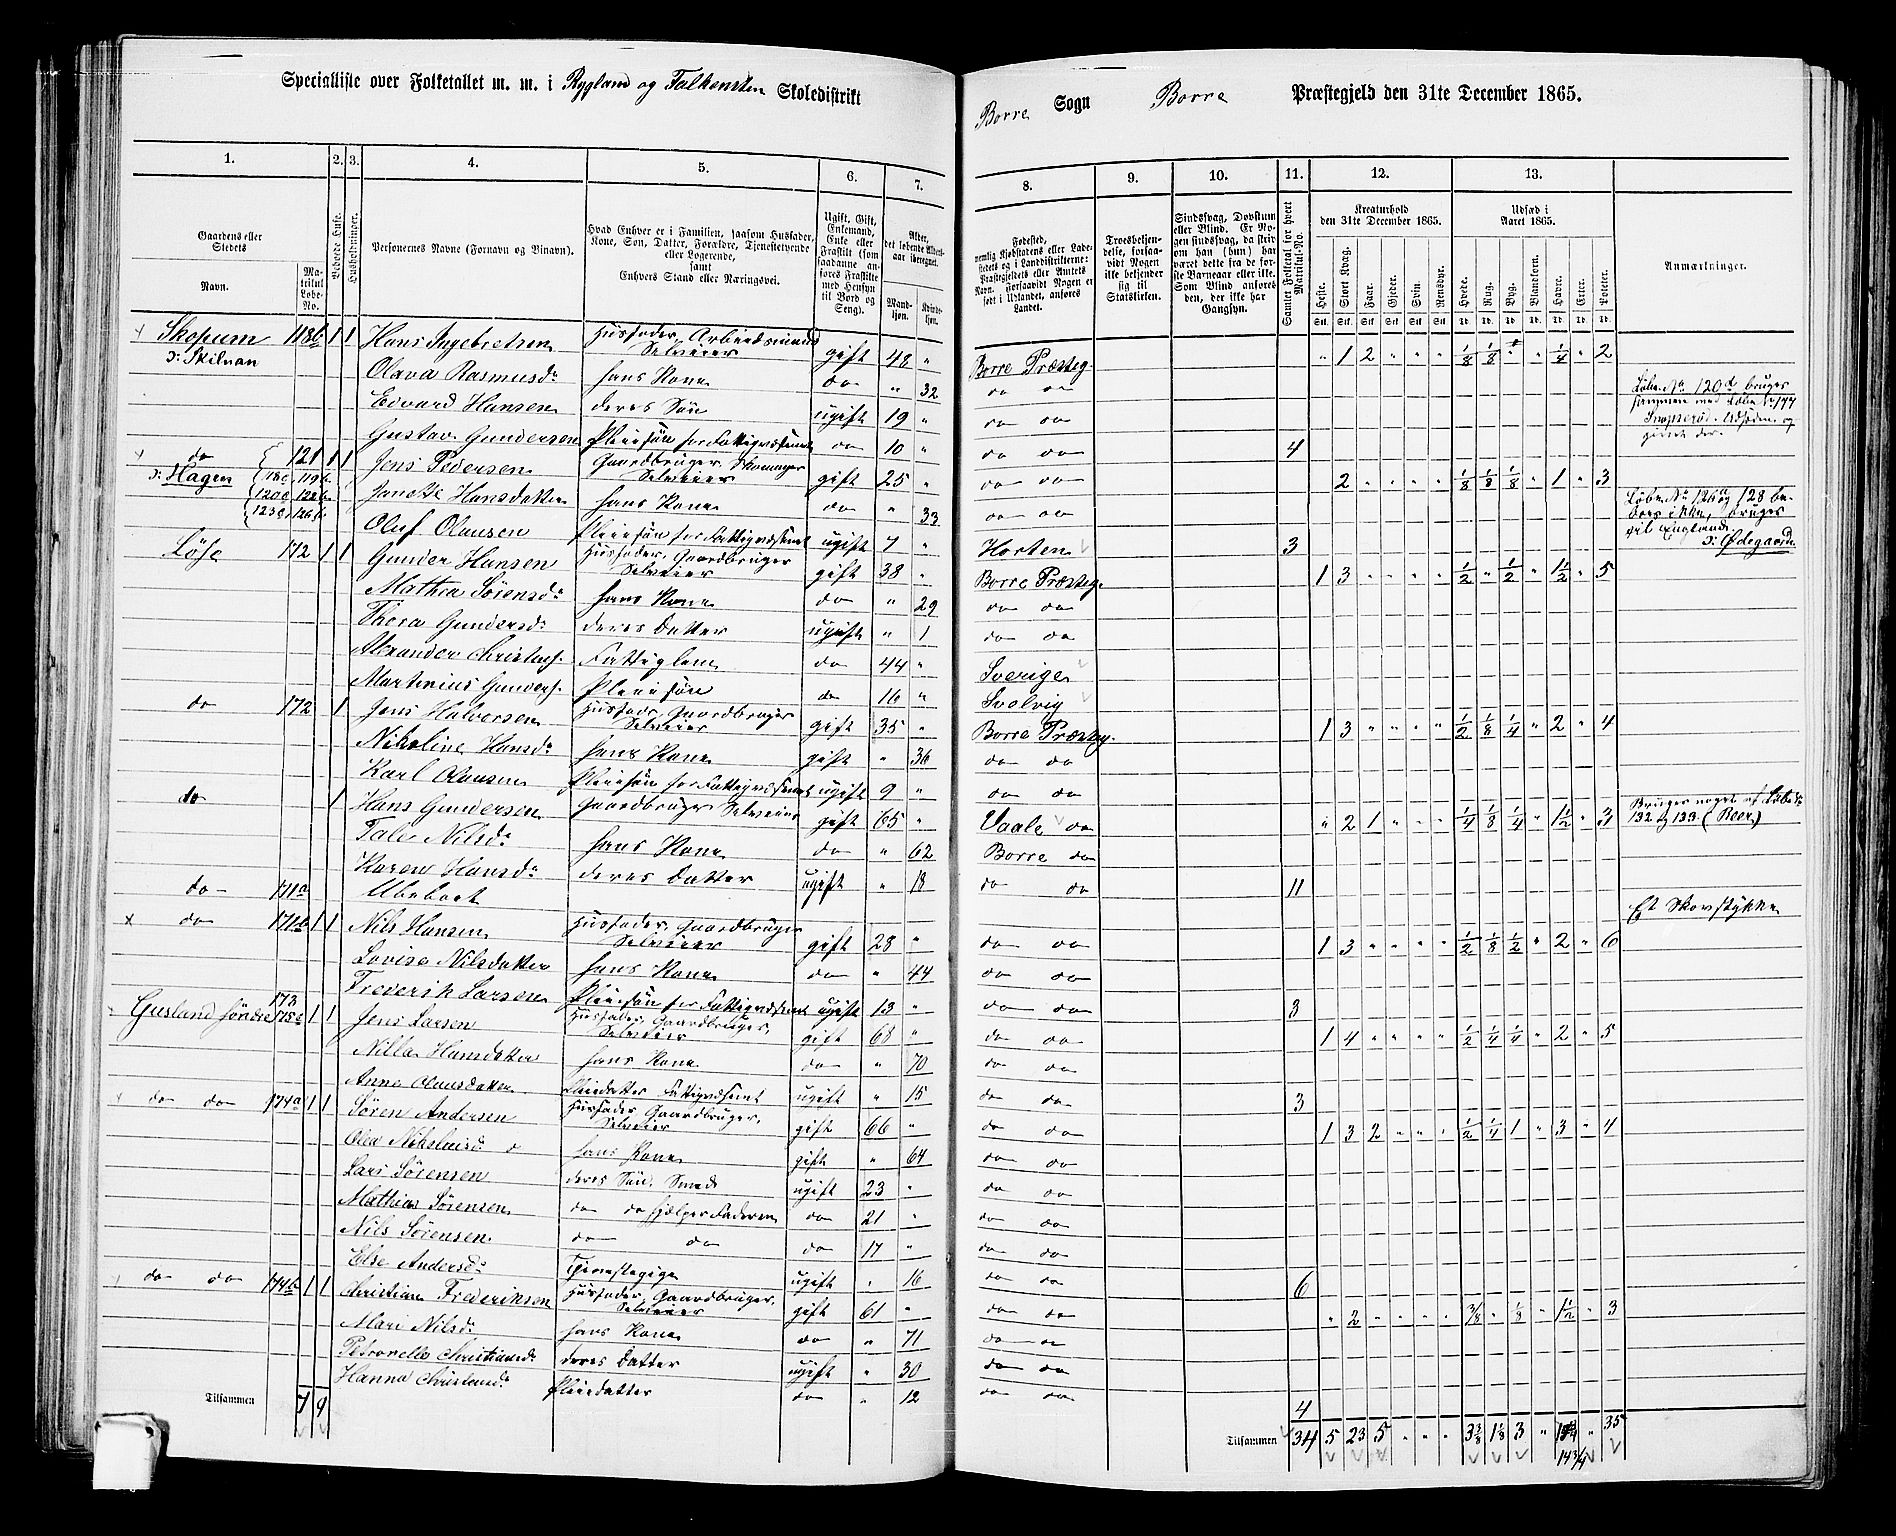 Specialliste over Folketallet m. m. i Rygland og Falkensten Skoledistrikt
Borre Sogn Borre Præstegjeld den 31te December 1865.
1. 2. 3. 4. 5. 6. 7. 8. 9. 10. 11. 12. 13.
Gaardens eller Stedets Navn. Matrikul Løbe-No. Beboede Huse. Husholdninger. Personernes Navne (Fornavn og Binavn).
Hvad Enhver er i Familien, saasom Husfader, Kone, Søn, Datter, Forældre, Tjenestetyende eller Logerende, samt Enhvers Stand eller Næringsvei.
Ugift, Gift, Enkemand, Enke eller Fraskilt (som saadanne anføres Fraskilte med Hensyn til Bord og Seng).
Alder, det løbende Alders-aar iberegnet. Mandkjøn. Kvindekjøn.
Fødested, nemlig Kjøbstadens eller Ladestedets og i Landdistrikterne: Præstegjeldets eller Amtets Navn, forsaavidt Nogen er født i Udlandet, anføres Landet.
Troesbekjendelse, forsaavidt Nogen ikke bekjender sig til Statskirken.
Sindssvag, Døvstum eller Blind. Er Nogen sindssvag, da skriv om han (hun) har været dette fra de første Barneaar eller ikke. Som Blind anføres den, der ikke har Gangsyn.
Samlet Folketal for hvert Matrikul-No.
Kreaturhold den 31te December 1865. Heste. Stort Kvæg. Faar. Gjeder. Svin. Rensdyr.
Udsæd i Aaret 1865. Hvede. Rug. Byg. Blandkorn. Havre. Erter. Poteter.
Anmærkninger.
Skopum 118b 1 1 Hans Ingebretsen Husfader, Arbeidsmand Selveier gift 48 " Borre Præsteg. " 1 2 " " " 1/8 1/8 " " 1/4 " 2
ɔ: Skilvan Olava Rasmusd: hans Kone do " 32 do do
Edvard Hansen deres Søn ugift 19 " do do Løbe No 120d bruges sammen med Løbe No 144
Gustav Gundersen Pleiesøn for Fattigvæsenet do 10 " do do 4
do 121 1 1 Jens Pedersen Gaardbruger, Skomager Selveier gift 25 " do do 2 " " " " 1/8 1/8 1/8 " 1 " 3
ɔ: Hagen 119b Janette Hansdatter hans Kone do " 33 do do Løbe No 126a og 128 be-
120c 122b Oluf Olausen Pleiesøn for Fattigvæsenet ugift 7 " Horten 3 boes ikke, bruges til England
123c 126b ɔ: Ødegaard
Løse 172 1 1 Gunder Hansen Husfader, Gaardbruger Selveier gift 38 " Borre Præsteg. 1 3 " " " " 1/2 " 1/2 " 1 1/2 " 5
Mathea Sørensd: hans Kone do " 29 do do
Thora Gundersd: deres Datter ugift " 1 do do
Alexander Christens. Fattiglem do 44 " Sverige
Martinius Gunders. Pleiesøn do 16 " Svelvig
do 172 1 Jens Halvorsen Husfader, Gaardbruger Selveier gift 35 " Borre Præsteg. 1 3 " " " " 1/2 1/8 1/4 " 2 " 4
Nikoline Hansd: hans Kone gift " 36 do do
Karl Olausen Pleiesøn for Fattigvæsenet ugift 9 " do do
do 1 Hans Gundersen Gaardbruger Selveier gift 65 " Vaale do " 2 1 " " " 1/4 1/8 1/4 " 1 1/2 " 3 Bruges noget af Løbe No 132 og 133 (Reer)
Tale Nilsd: hans Kone do " 62 Borre do
Karen Hansd: deres Datter ugift " 18 do do 11
do 171a Ubeboet Et Skovstykke
do 171b 1 1 Nils Hansen Husfader, Gaardbruger Selveier gift 28 " do do 1 3 " " " " 1/2 1/8 1/2 " 2 " 6
Lovise Nilsdatter hans Kone do " 44 do do
Frederik Larsen Pleiesøn for Fattigvæsenet ugift 13 " do do 3
Gusland søndre 173 175c 1 1 Jens Larsen Husfader, Gaardbruger, Selveier gift 68 " do do 1 4 " " " " 1/2 1/4 1/4 " 2 " 5
Nilla Hansdatter hans Kone do " 70 do do
Anne Olausdatter Pleiedatter Fattigvæsenet ugift " 15 do do 3
do do 174a 1 1 Søren Andersen Husfader, Gaardbruger, Selveier gift 66 " do do 1 3 2 " " " 1/2 1/4 1 " 3 " 4
Olea Nikolaisd: hans Kone gift " 64 do do
Lars Sørensen deres Søn, Smed ugift 23 " do do
Mathias Sørensen do do hjelper Faderen do 21 " do do
Nils Sørensen do do do 17 " do do
Else Andersd: Tjenestepige ugift " 16 do do 6
do do 174b 1 1 Christian Frederiksen Husfader, Gaardbruger, Selveier gift 61 " do do " 2 " " " " 3/8 " 1/8 " 1 1/2 " 3
Mari Nilsd: hans Kone do " 71 do do
Petronelle Christiansd: deres Datter ugift " 30 do do
Hanna Christiansd: Pleiedatter do " 12 do do 4
Tilsammen 7 9 Tilsammen 34 5 23 5 " " " 3 3/8 1 1/8 3 " " 35
14 3/4